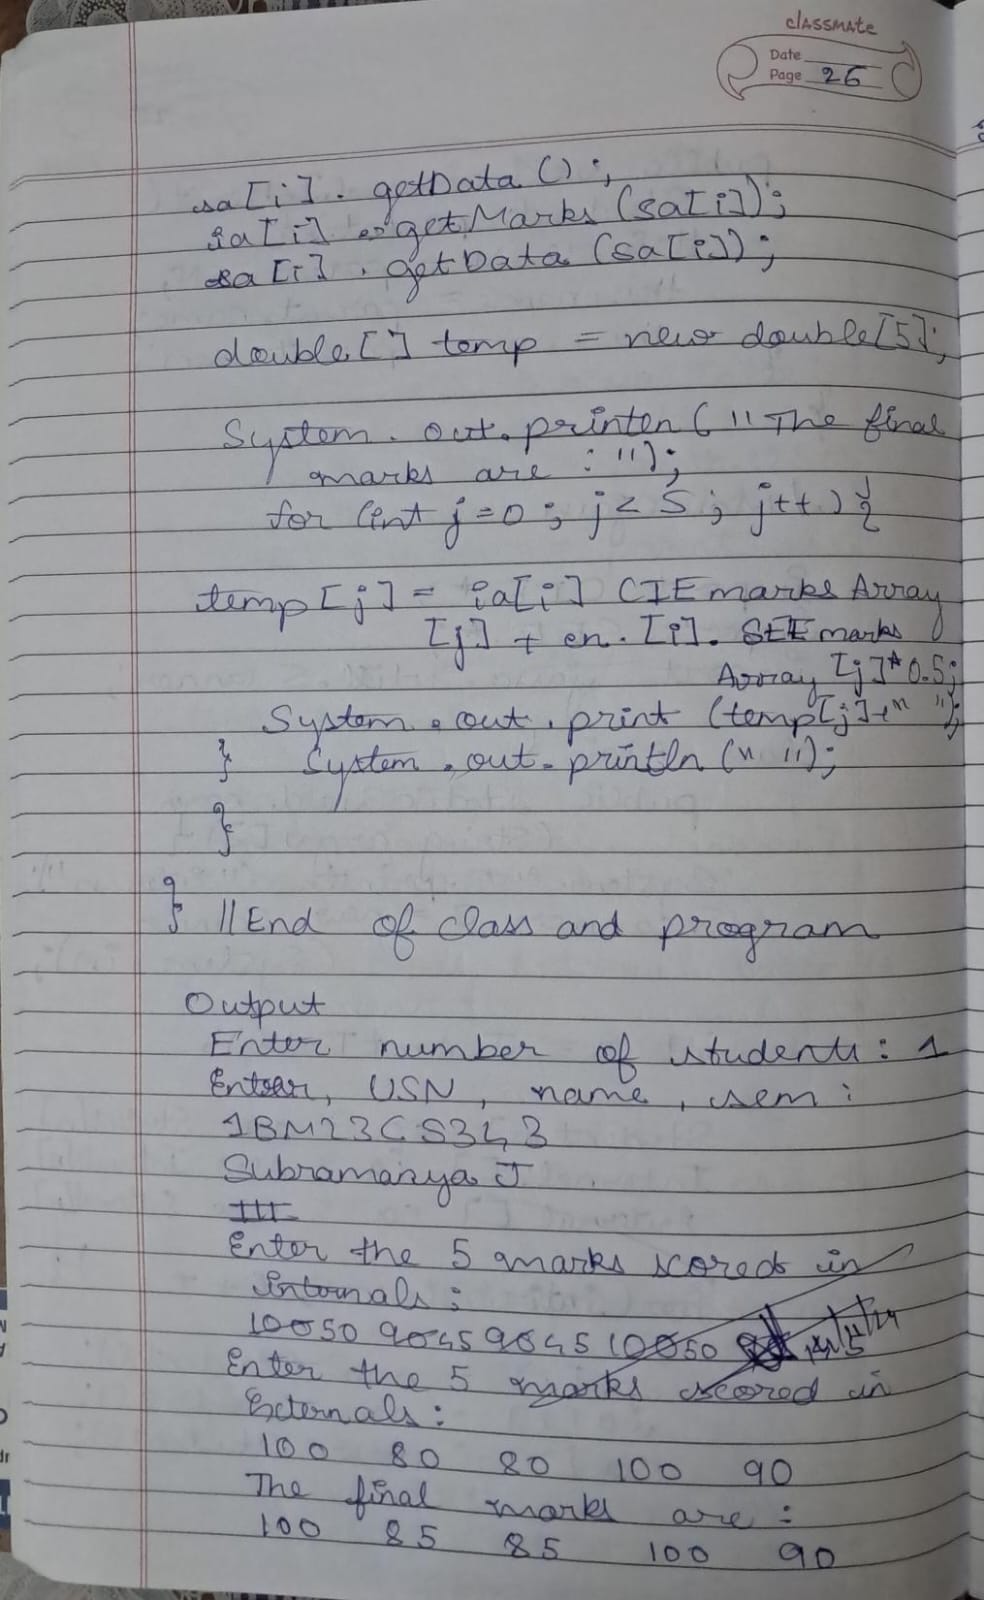 classmate
Date
Page 26
sa[i]. getData ();
ia[i] . getMarks (sa[i]);
sa[i] . getData (sa[i]);
double[] temp = new double[5];
System. out. println ( "The final
marks are : ");
for (int j=0 ; j< 5 ; j++ ) {
temp[j] = ia[i] CIE marks Array
[j] + en. [i]. SEE marks
Array [j]*0.5;
System . out . print (temp[j]+" ");
} System . out . println (" ");
}
} //End of class and program
Output
Enter number of students : 1
Enter, USN , name , sem :
1BM23CS343
Subramanya J
III
Enter the 5 marks scored in
internals :
10050 9045 9045 10050
Enter the 5 marks scored in
Externals :
100 80 80 100 90
The final marks are :
100 85 85 100 90